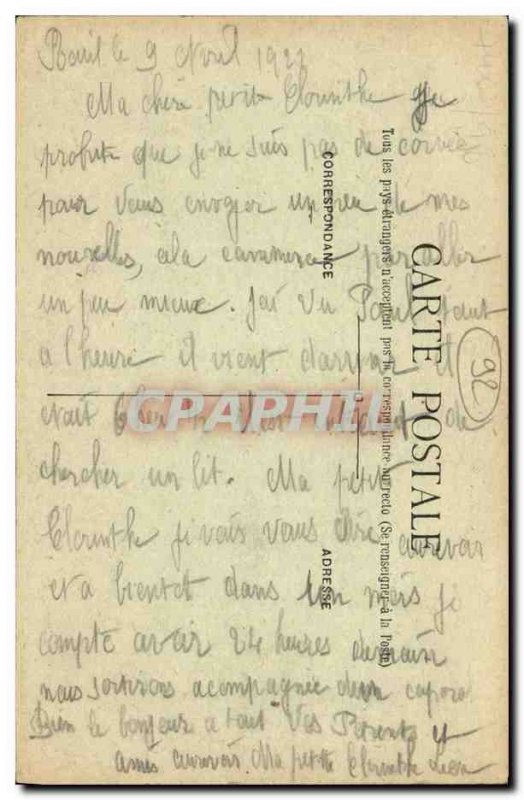 le 9 Avril 192
Ma chère petite Clorinthe Je
profite que je ne suis pas de corvée
pour vous envoyer un peu de mes
nouvelles, cela commence par aller
un peu mieux. Jai vu Paul tout
a l'heure il vient darriver il
etait
chercher un lit. Ma petite
Clorinthe je vais vous dire aurevoir
et a bientot dans un mois je
compte avoir 24 heures demain
nous sortirons acompagnée dun caporal
Bien le bonjour a tout Vos Parents et
amis aurevoir Ma petite Clorinthe Leon
CARTE POSTALE
Tous les pays étrangers n'acceptent pas la correspondance au recto (Se renseigner à la Poste)
CORRESPONDANCE
ADRESSE
92
CPAPHIL